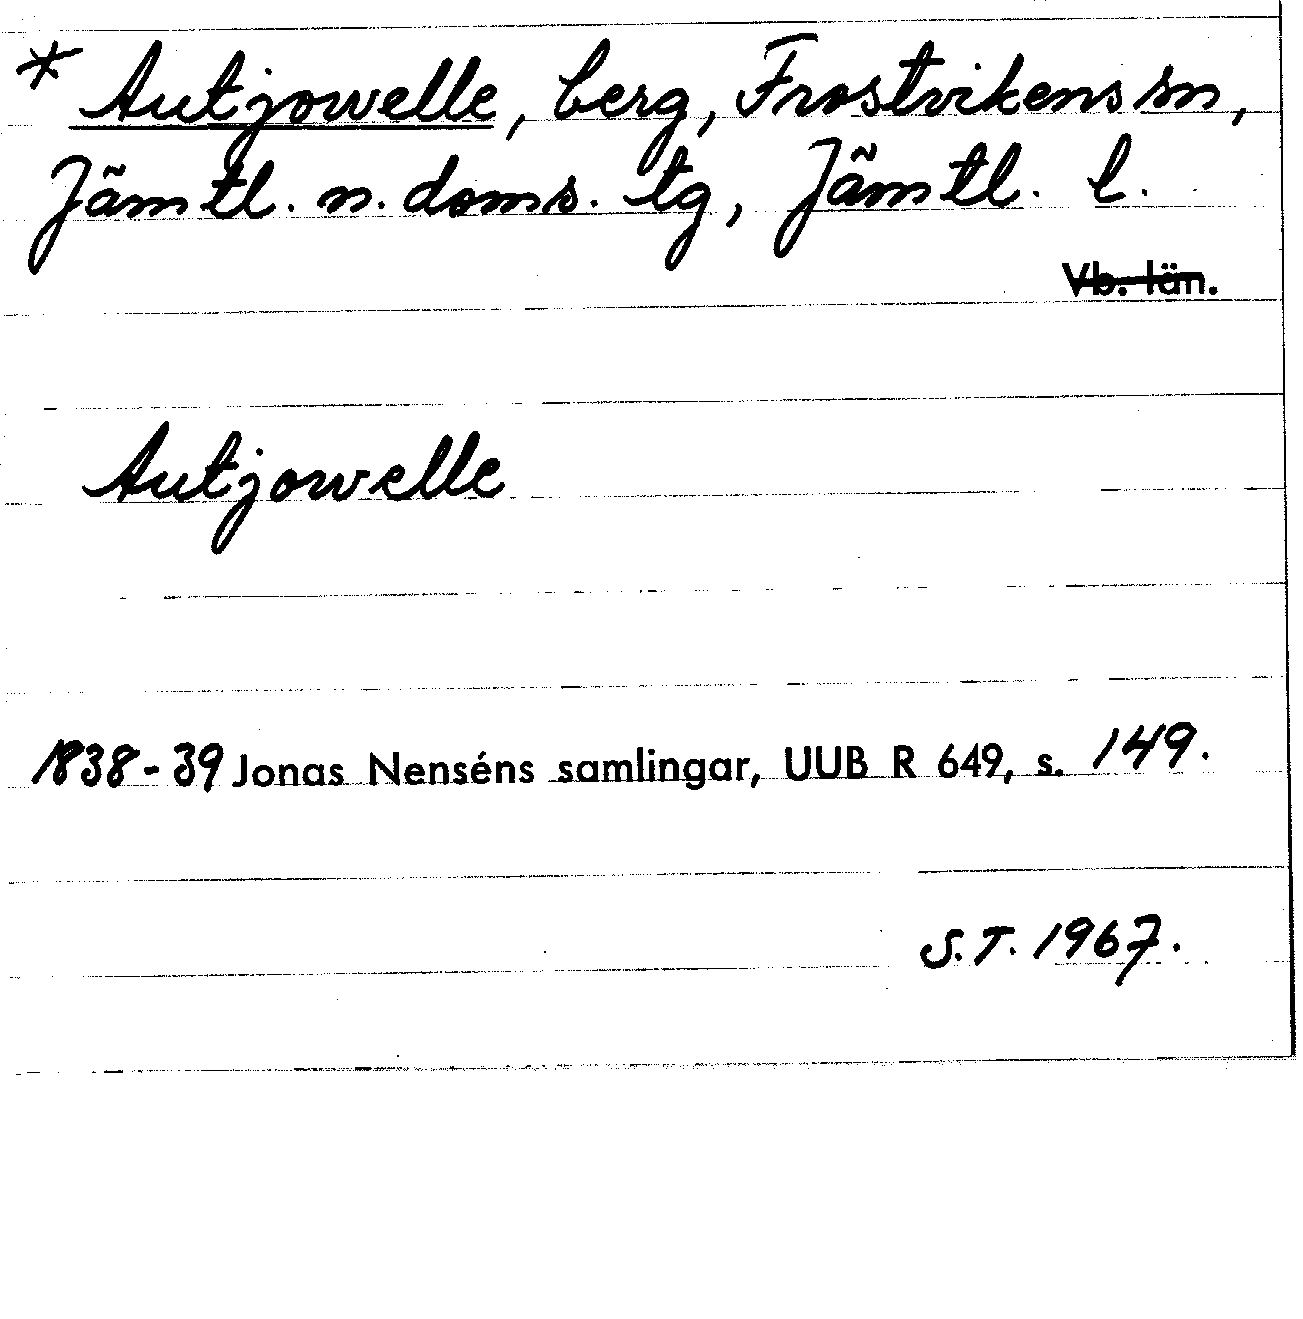 * Autjowelle, berg, Frostvikens sn,
Jämtl. n. doms. tg, Jämtl. l.
Vb. län.
Autjowelle
1838-39 Jonas Nenséns samlingar, UUB R 649, s. 149.
S.T. 1967.